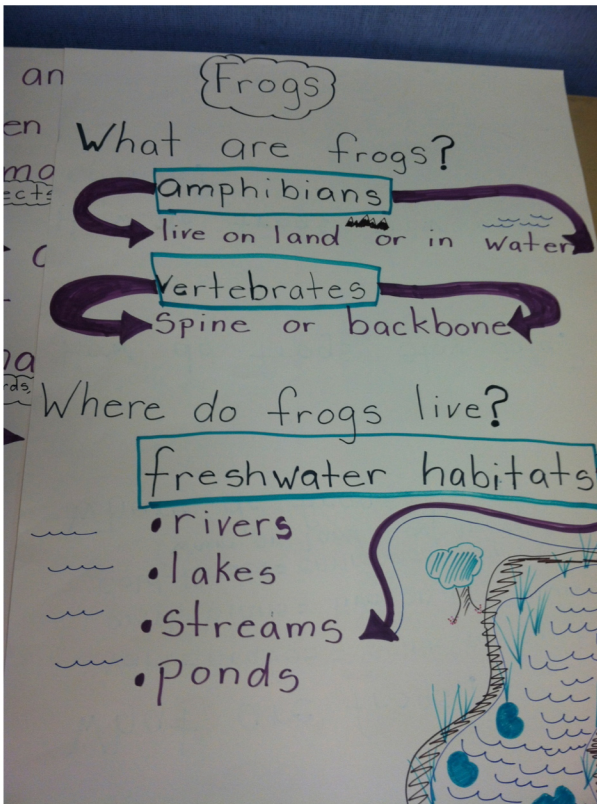 Frogs
What are frogs?
amphibians
live on land or in water
vertebrates
Spine or backbone
Where do frogs live?
freshwater habitats
• rivers
• lakes
• streams
• ponds
an
en